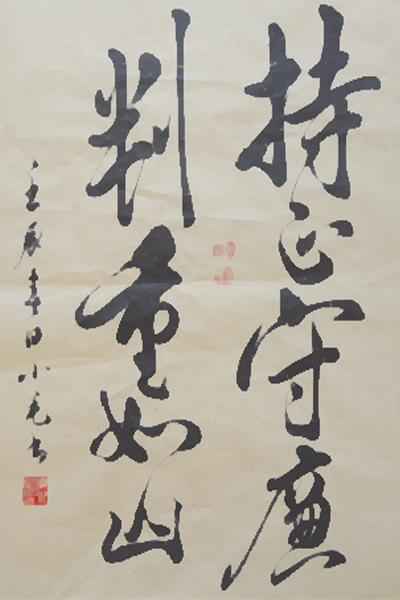 持正守廉
判重如山
壬辰春日小毛书